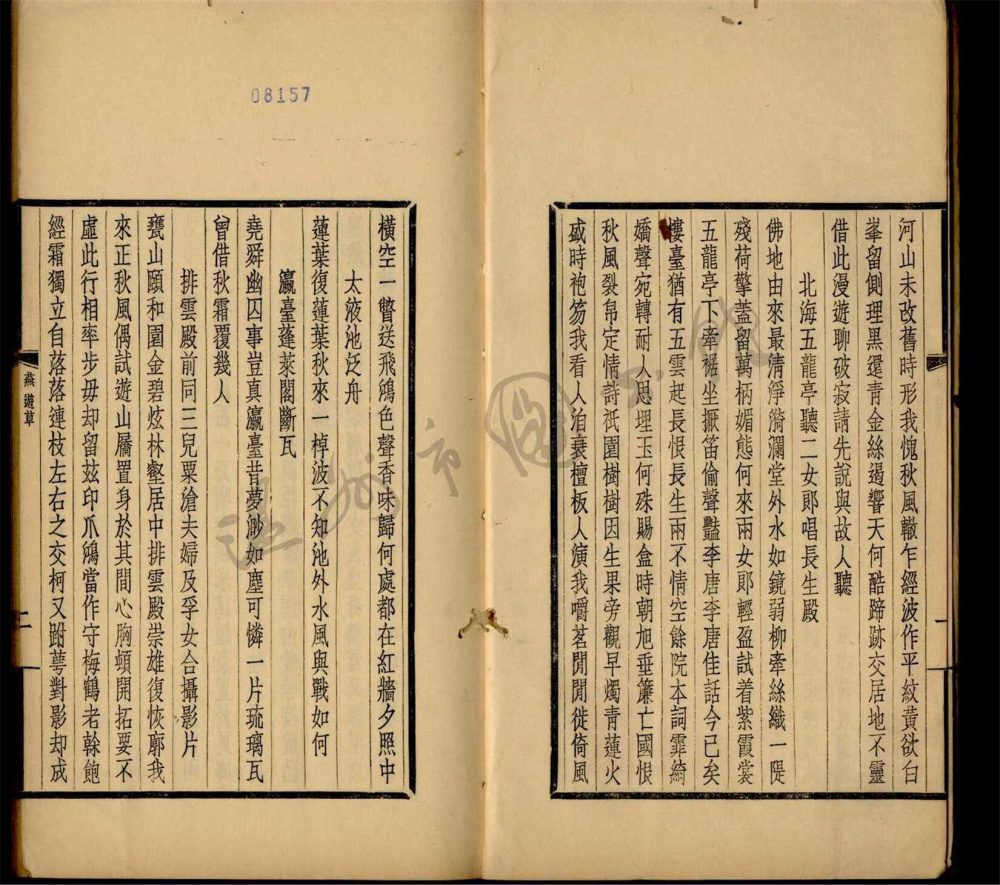 河山未改舊時形我愧秋風轍乍經波作平紋黃欲白
峯留側理黑還青金絲遏響天何酷蹄跡交居地不靈
借此漫遊聊破寂請先說與故人聽
北海五龍亭聽二女郎唱長生殿
佛地由來最清淨漪瀾堂外水如鏡弱柳牽絲織一隄
殘荷擎蓋留萬柄媚態何來兩女郎輕盈試着紫霞裳
五龍亭下牽裾坐擫笛偷聲豔李唐李唐佳話今已矣
樓臺猶有五雲起長恨長生兩不情空餘院本詞霏綺
嬌聲宛轉耐人思埋玉何殊賜盒時朝旭垂簾亡國恨
秋風裂帛定情詩祇園樹樹因生果旁觀早燭青蓮火
盛時袍笏我看人洎衰檀板人演我嚼茗閒聞徙倚風
橫空一瞥送飛鴻色聲香味歸何處都在紅牆夕照中
太液池泛舟
蓮葉復蓮葉秋來一棹波不知池外水風與戰如何
瀛臺蓬萊閣斷瓦
堯舜幽囚事豈真瀛臺昔夢渺如塵可憐一片琉璃瓦
曾借秋霜覆幾人
排雲殿前同三兒粟滄夫婦及孚女合攝影片
甕山頤和園金碧炫林壑居中排雲殿崇雄復恢廓我
來正秋風偶試遊山屩置身於其間心胸頓開拓要不
虛此行相率步毋却留玆印爪鴻當作守梅鶴老榦飽
經霜獨立自落落連枝左右之交柯又跗萼對影却成
燕遊草
一
二
08157